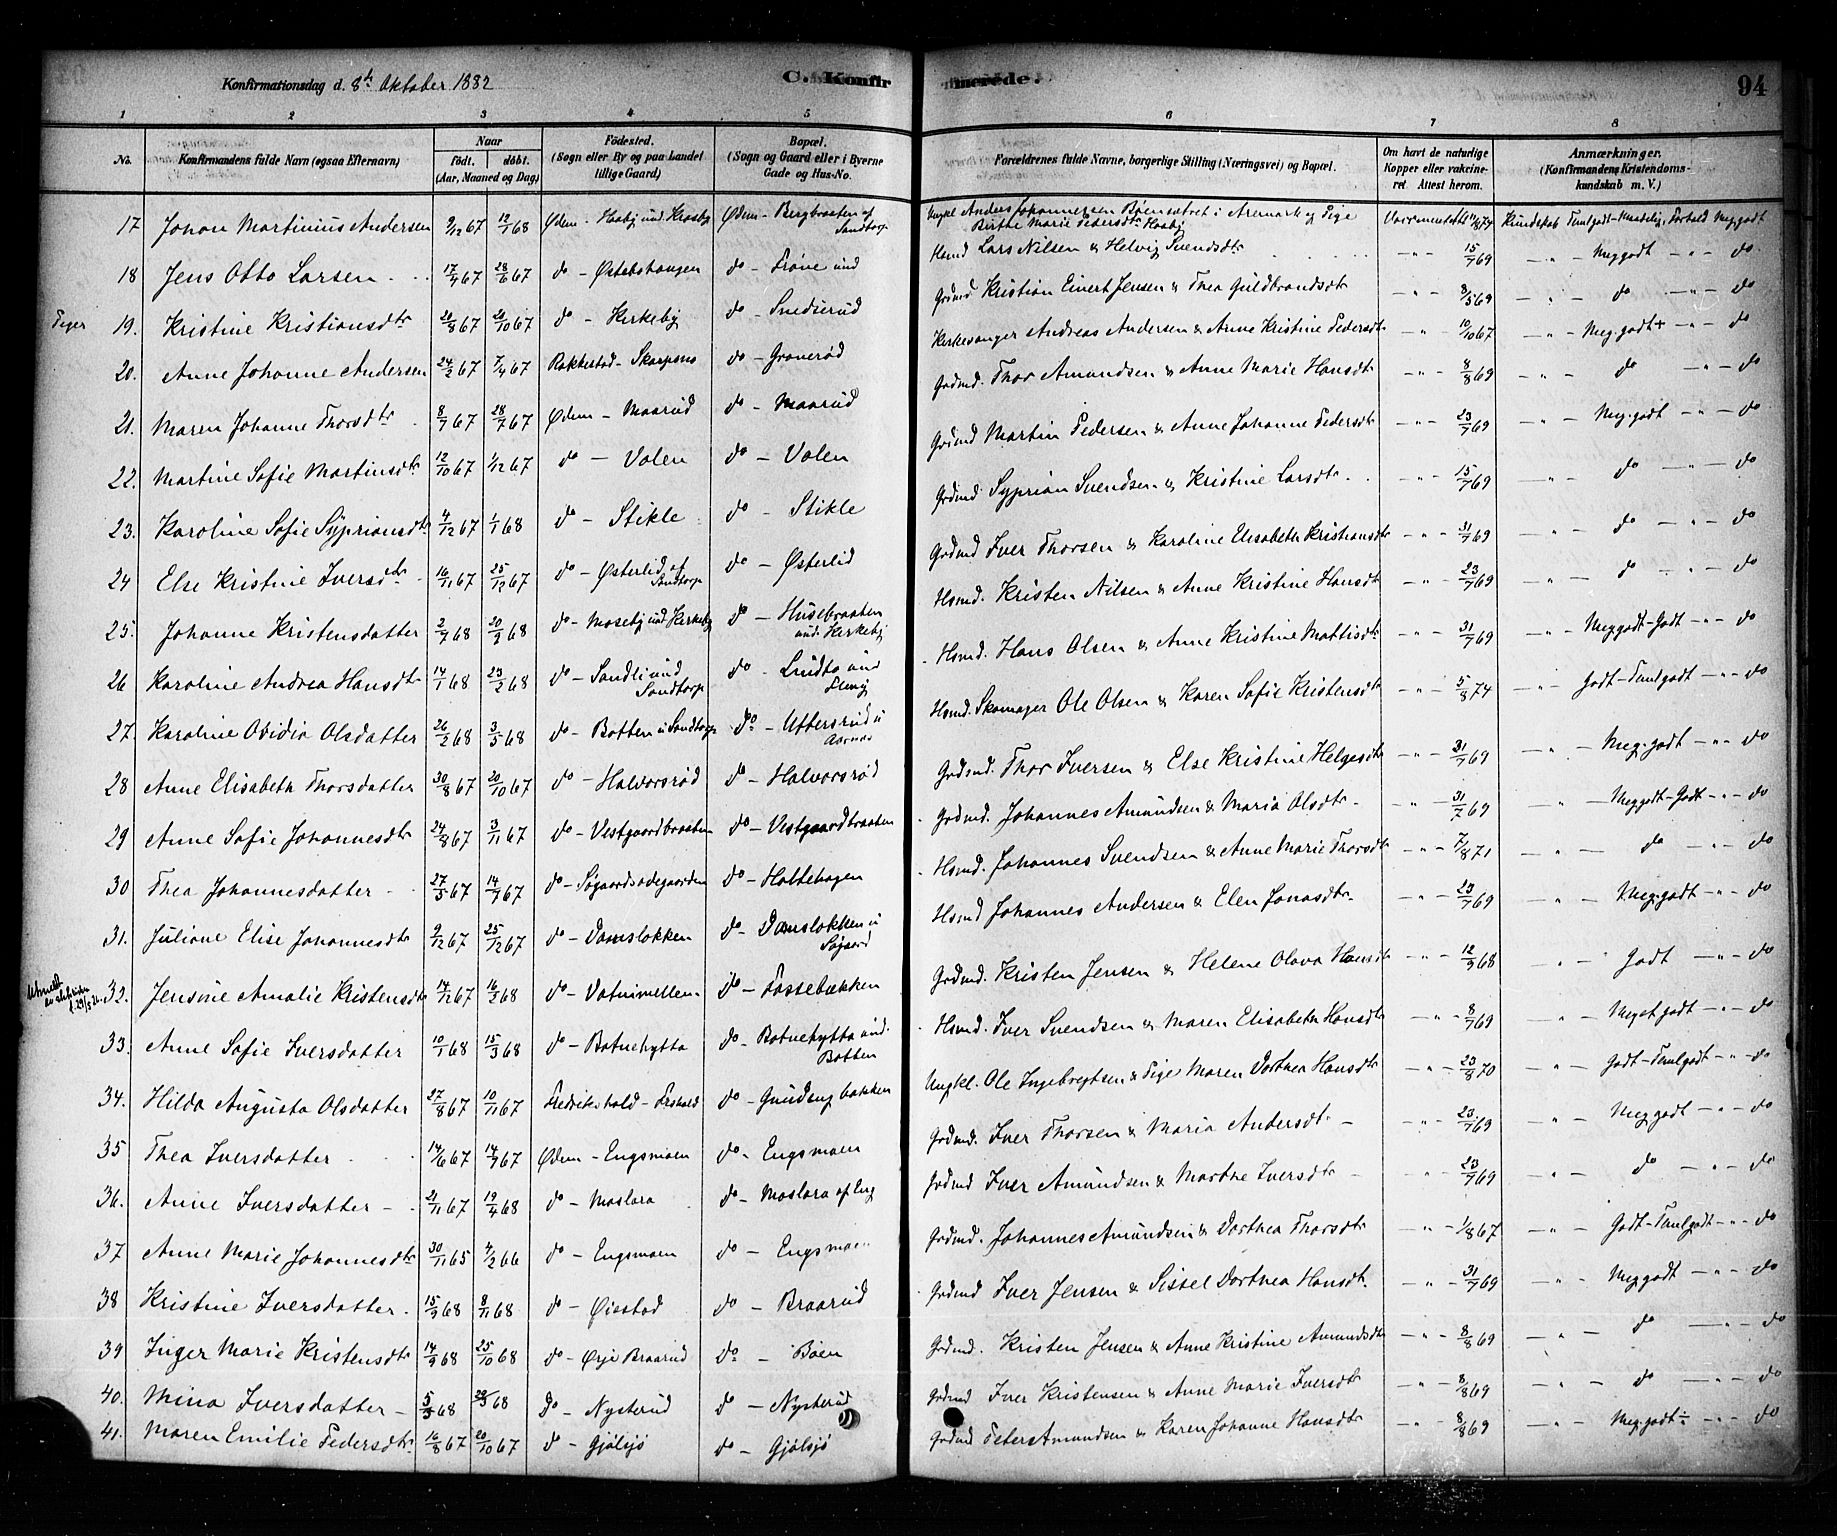 Konfirmationsdag d. 8de Oktober 1882
C. Konfirmerede.
94
1 2 3 4 5 6 7 8
No. | Konfirmandens fulde Navn (ogsaa Efternavn) | Naar født. døbt. (Aar, Maaned og Dag) | Fødested. (Sogn eller By og paa Landet tillige Gaard) | Bopæl. (Sogn og Gaard eller i Byerne Gade og Hus-No. | Forældrenes fulde Navne, borgerlige Stilling (Næringsvei) og Bopæl. | Om havt de naturlige Kopper eller vakcineret. Attest herom. | Anmærkninger. (Konfirmandens Kristendomskundskab m. V.)
17 Johan Martinius Andersen 9/12 67 12/1 68 Ødem. - Haabj und Ødem - Bergbraaten af Sandtorp Ungkl Anders Johannesen i Aremark og Pige Birthe Marie Pedersdtr Haabj Kundskab Temlgodt - Forhold Meg godt
18 Jens Otto Larsen 17/4 67 28/6 67 do - do - und Hsmd Lars Nilsen & Helvig Svendsdtr - " - 15/7 69 - " - Meg godt - " - do
Piger 19. Kristine Kristiansdtr 20/8 67 20/10 67 do - Kirkeby do - Grdmd Kristian Einert Jensen & Thea Guldbrandsdtr - " - 8/5 69 - " - do - " - do
20. Anne Johanne Andersen 24/2 67 7/4 67 Rakkestad - Skarpsno do - Granerød Kirkesanger Andreas Andersen & Anne Kristine Pedersdtr - " - 10/10 67 - " - Meg. godt + - " - do
21. Maren Johanne Thorsdtr 8/7 67 28/7 67 Ødem - Maarud do - Maarud Grdmd. Thor Amundsen & Anne Marie Hansdtr - " - 8/8 69 - " - do - " - do
22. Martine Sofie Martinsdtr 12/10 67 1/12 67 do - Valen do - Valen Grdmd Martin Pedersen & Anne Johanne Pedersdtr - " - 23/7 69 - " - Meg. godt - " - do
23. Karoline Sofie Syprionsdtr 4/12 67 1/1 68 do - Stikle do - Stikle Grdmd Syprian Svendsen & Kristine Larsdtr - " - 15/7 69 - " - do - " - do
24 Else Kristine Iversdtr 16/11 67 25/12 67 do - Østerlid af Sandtorp do - Østerlid Grdmd Iver Thorsen & Karoline Elisabeth Kristiansdtr - " - 31/7 69 - " - do - " - do
25. Johanne Kristensdatter 2/7 68 20/9 68 do - Moseby und Kirkeby do - Husebraaten und. Kirkeby Hsmd. Kristen Nilsen & Anne Kristine Hansdtr - " - 23/7 69 - " - do - " - do
26 Karoline Andrea Hansdtr 14/1 68 23/2 68 do - Sandli und Sandtorp do - und Hsmd. Hans Olsen & Anne Kristine Mattisdtr - " - 31/7 69 - " - Meg godt - Godt - " - do
27. Karoline Ovidia Olsdatter 26/2 68 3/5 68 do - Botten u Sandtorp do - u Aarnæs Hsmd. Skomager Ole Olsen & Karen Sofie Kristensdtr - " - 5/8 74 - " - Godt - Temlgodt - " - do
28 Anne Elisabeth Thorsdatter 30/8 67 20/10 67 do - Halvorsrød do - Halvorsrød Grdmd. Thor Iversen & Else Kristine Helgesdtr - " - 31/7 69 - " - Meg. godt - " - do
29 Anne Sofie Johannesdtr 24/8 67 3/11 67 do - Vestgaardbraaten do - Vestgaardbraaten Grdmd. Johannes Amundsen & Maria Olsdtr - " - 31/7 69 - " - Meg godt - Godt - " - do
30 Thea Johannesdatter 27/5 67 14/7 67 do - Søgaardsødegaarden do - Holtehagen Hsmd. Johannes Svendsen & Anne Marie Thorsdtr - " - 7/8 71 - " - do - " - do
31. Juliane Elise Johannesdtr 9/12 67 25/12 67 do - Damsløkken do - Damsløkken u Søgaard Hsmd Johannes Andersen & Elen Jonasdtr - " - 23/7 69 - " - Meg. godt - " - do
32. Jensine Amalie Kristensdtr 14/12 67 16/2 68 do - do - Fossebækken Grdmd. Kristen Jensen & Helene Olava Hansdtr - " - 12/9 68 - " - Godt - " - do
33. Anne Sofie Iversdatter 10/1 68 15/3 68 do - Botnehytta do - Botnehytta und. Botten Hsmd. Iver Svendsen & Maren Elisabeth Hansdtr - " - 8/7 69 - " - Meget godt - " - do
34. Hilda Augusta Olsdatter 27/8 67 10/11 67 Fredrikshald - do - bakken Ungkl. Ole Ingebregtsen & Pige Maren Dorthea Hansdtr - " - 23/8 70 - " - Godt - Temlgodt - " - do
35 Thea Iversdatter 14/6 67 14/7 67 Ødem - Engsmoen do - Engsmoen Grdmd. Iver Thorsen & Maria Andersdtr - " - 23/7 69 - " - Meg godt - " - do
36. Anne Iversdatter 21/11 67 19/4 68 do - Moslara do - Moslara af Eng Grdmd Iver Amundsen & Marthe Iversdtr - " - 23/7 69 - " - do - " - do
37 Anne Marie Johannesdtr 30/11 65 4/2 66 do - Engsmoen do - Engsmoen Grdmd. Johannes Amundsen & Dorthea Thorsdtr - " - 1/8 67 - " - Godt - Temlgodt - " - do
38 Kristine Iversdatter 15/9 68 8/11 68 do - Øiestad do - Braarud Grdmd Iver Jensen & Sissel Dorthea Hansdtr - " - 31/7 69 - " - Meg godt - " - do
39 Inger Marie Kristensdtr 14/9 68 25/10 68 do - Ørje Braarud do - Bøen Grdmd. Kristen Jensen & Anne Kristine Amundsdtr - " - 8/8 69 - " - do - " - do
40. Mina Iversdatter 5/3 68 29/3 68 do - Nysterud do - Nysterud Grdmd Iver Kristensen & Anne Marie Iversdtr - " - 8/8 69 - " - do - " - do
41. Maren Emilie Pedersdtr 16/8 67 20/10 67 do - Gjølsjø do - Gjølsjø Grdmd Peter Amundsen & Karen Johanne Hansdtr - " - 8/8 69 - " - Meg. godt ÷ - " - do